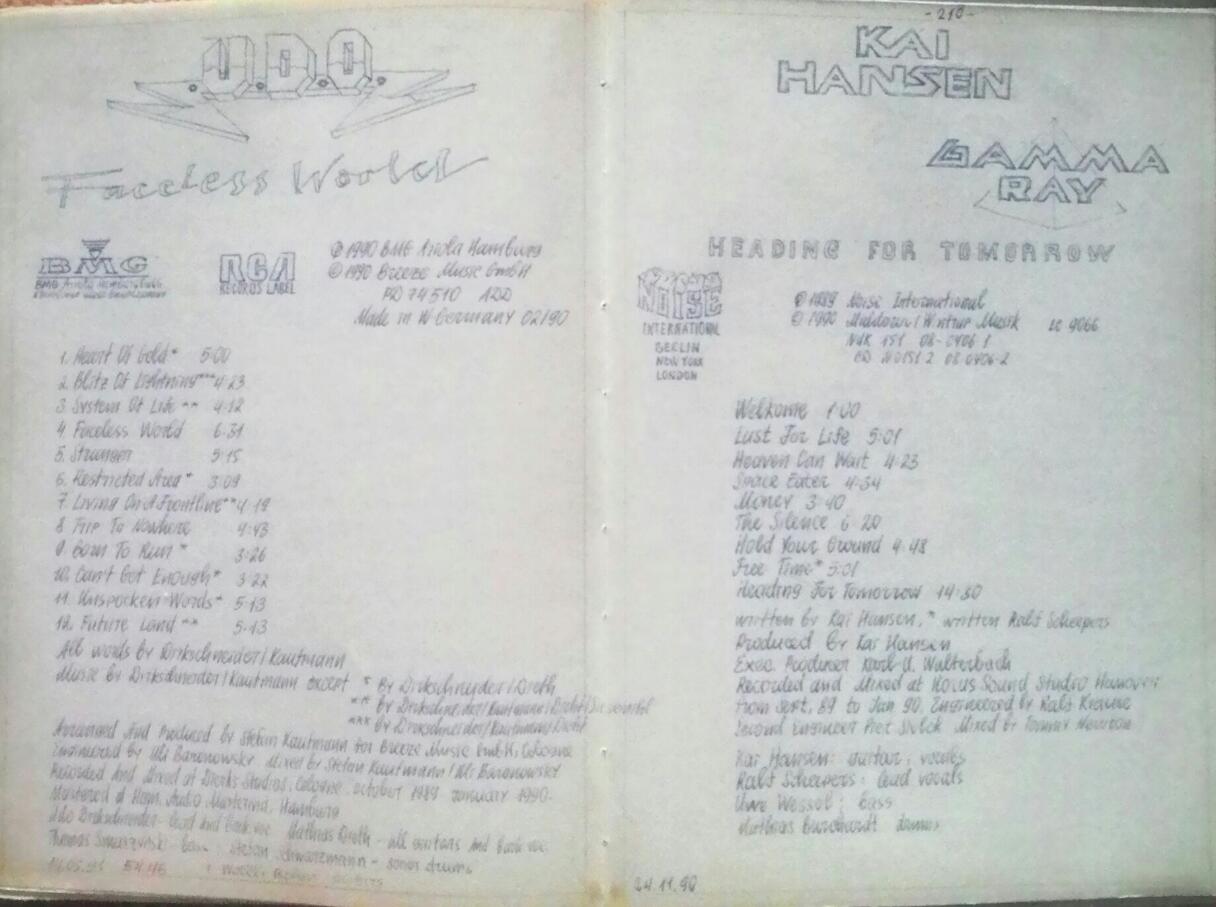 U.D.O.
Faceless World
BMG
RCA
RECORDS LABEL
℗ 1990 BMG Ariola Hamburg
© 1990 Breeze Music GmbH
PD 74510 ADD
Made in W Germany 02/90
1. Heart Of Gold* 5:00
2. Blitz Of Lightning*** 4:23
3. System Of Life ** 4:12
4. Faceless World 6:31
5. Stranger 5:15
6. Restricted Area* 3:09
7. Living On A Frontline** 4:19
8. Trip To Nowhere 4:43
9. Born To Run * 3:26
10. Can't Get Enough* 3:22
11. Unspocken Words* 5:13
12. Future Land ** 5:13
All words by Dirkschneider/Kaufmann
Music by Dirkschneider/Kaufmann except * By Dirkschneider/Dieth
** by Dirkschneider/Kaufmann/Dieth/
*** by Dirkschneider/Kaufmann/Dieth
Arranged And Produced by Stefan Kaufmann for Breeze Music GmbH, Cologne
Engineered by Uli Baronowsky Mixed by Stefan Kaufmann/Uli Baronowsky
Recorded And Mixed at Dierks Studios, Cologne, october 1989 january 1990.
Mastered at Audio Mastering, Hamburg
Udo Dirkschneider - lead And Back voc Mathias Dieth - all guitars And back voc
Thomas Smuszynski - bass Stefan Schwarzmann - sonor drums
- 210 -
KAI
HANSEN
GAMMA
RAY
HEADING FOR TOMORROW
NOISE
INTERNATIONAL
BERLIN
NEW YORK
LONDON
℗ 1989 Noise International
© 1990 Musik LC 9066
NUK 151 08-0406 1
CD N0151 2 08 0406-2
Welkome 1:00
Lust For Life 5:01
Heaven Can Wait 4:23
Space Eater 4:34
Money 3:40
The Silence 6:20
Hold Your Ground 4:48
Free Time* 5:01
Heading For Tomorrow 14:30
written by Kai Hansen, * written Ralf Scheepers
Produced by Kai Hansen
Exec. Producer Karl-U. Walterbach
Recorded and Mixed at Horus Sound Studio Hannover
from Sept. 89 to Jan 90. Engineered by Ralf Krause
Second Engineer Piet Sielck Mixed by Tommy Newton
Kai Hansen: guitar, vocals
Ralf Scheepers: lead vocals
Uwe Wessel: bass
Mathias Burchardt drums
24.11.90